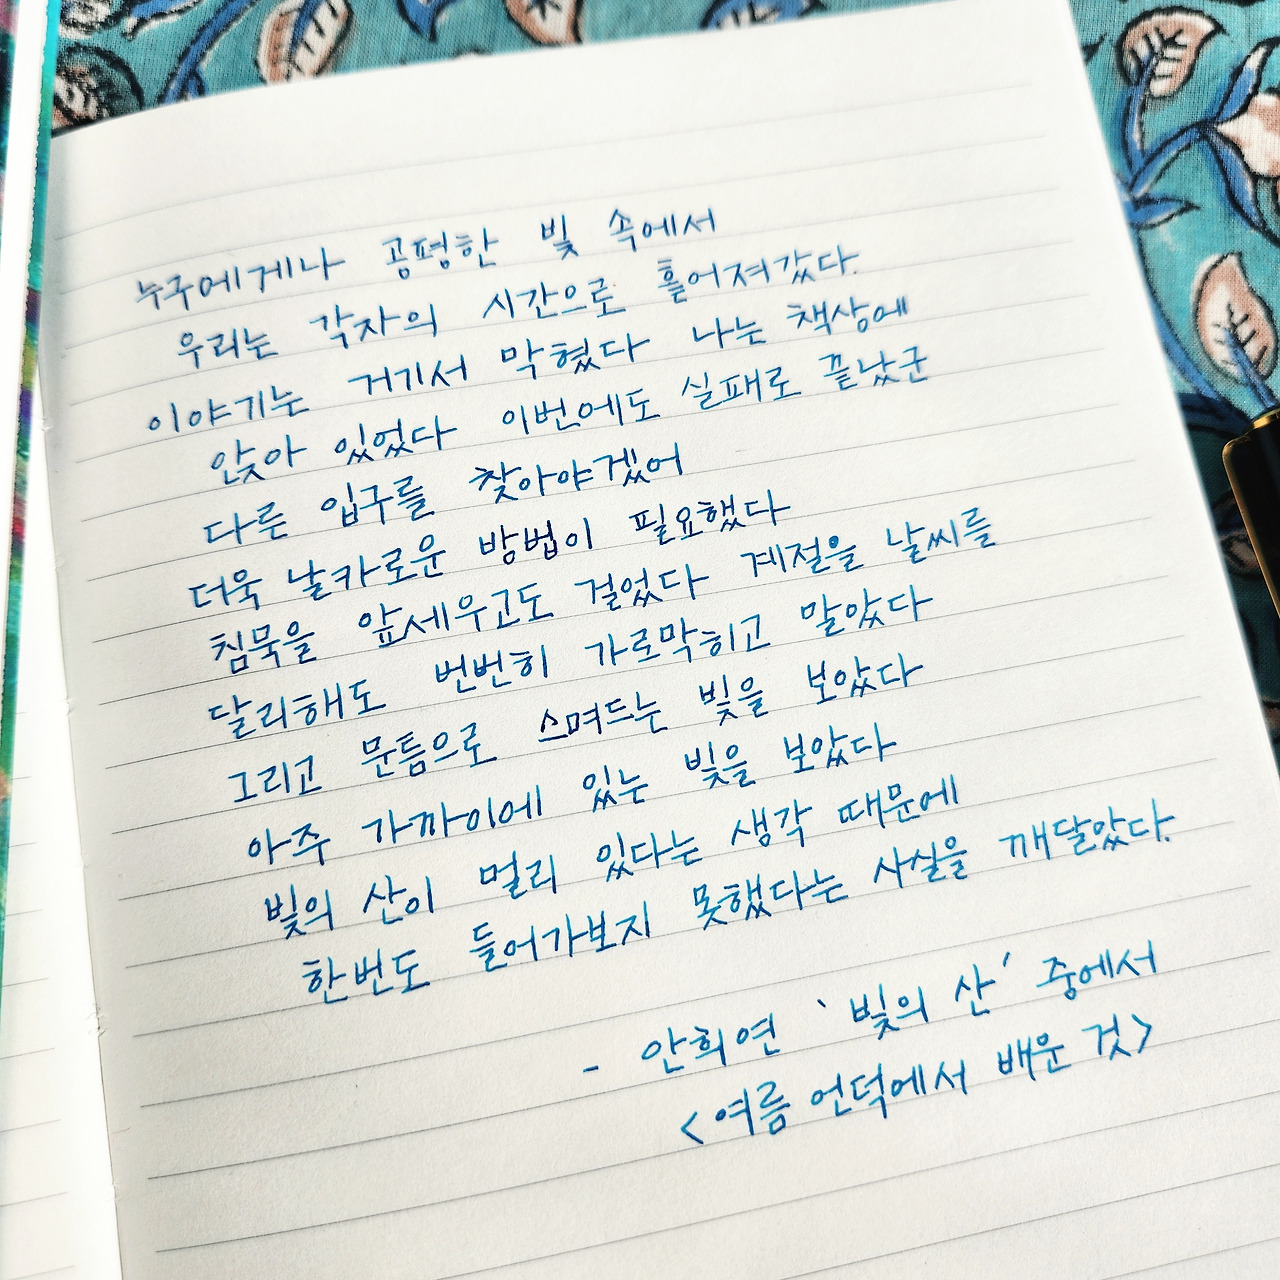 누구에게나 공평한 빛 속에서
우리는 각자의 시간으로 흩어져갔다.
이야기는 거기서 막혔다 나는 책상에
앉아 있었다 이번에도 실패로 끝났군
다른 입구를 찾아야겠어
더욱 날카로운 방법이 필요했다
침묵을 앞세우고도 걸었다 계절을 날씨를
달리해도 번번히 가로막히고 말았다
그리고 문틈으로 스며드는 빛을 보았다
아주 가까이에 있는 빛을 보았다
빛의 산이 멀리 있다는 생각 때문에
한번도 들어가보지 못했다는 사실을 깨달았다.
- 안희연 '빛의 산' 중에서
<여름 언덕에서 배운 것>